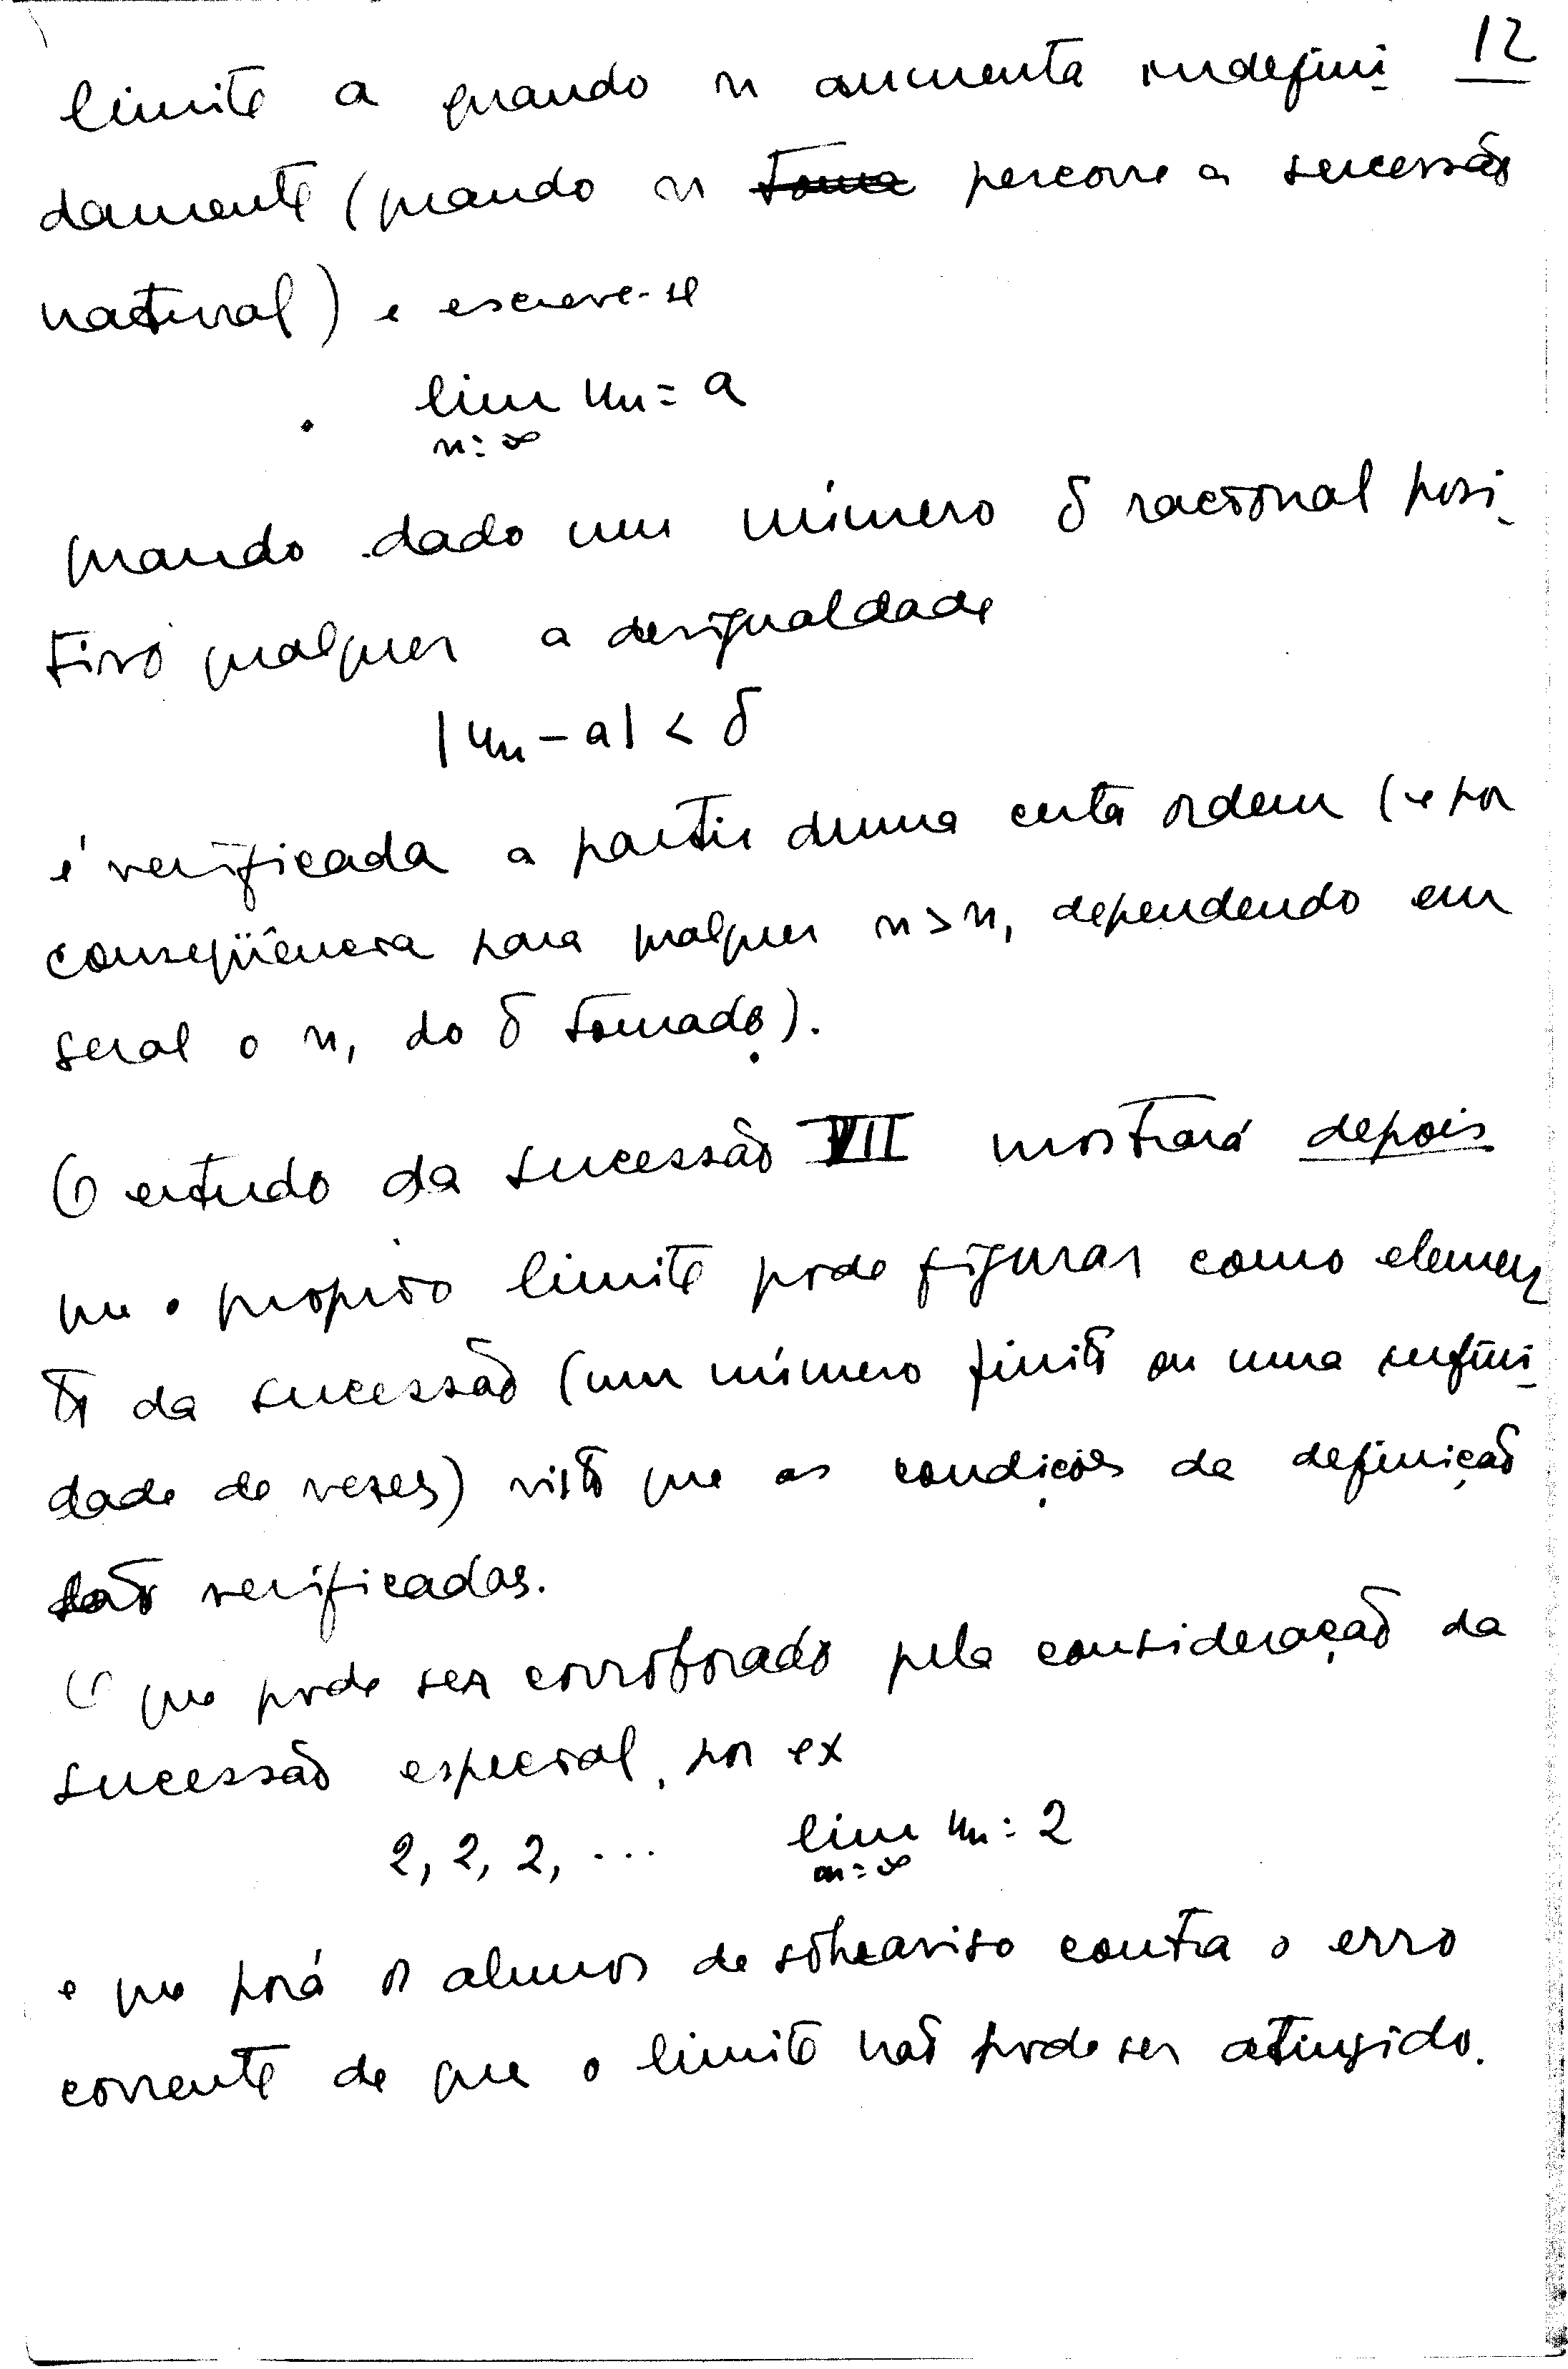 12
limite a quando n aumenta indefini
damente (quando n toma percorre a sucessão
natural) e escreve-se
lim un = a
n = ∞
quando dado um número δ racional posi
tivo qualquer a desigualdade
|un - a| < δ
é verificada a partir duma certa ordem (e por
conseqüência para qualquer n > n, dependendo em
geral o n, do δ tomado).
O estudo da sucessão VII mostrará depois
que o proprio limite pode figurar como elemen
to da sucessão (um número finito ou uma infini
dade de vezes) visto que as condições da definição
são verificadas.
O que pode ser corroborado pela consideração da
sucessão especial, por ex
2, 2, 2, ... lim un = 2
n = ∞
e que porá os alunos de sôbreaviso contra o erro
corrente de que o limite não pode ser atingido.